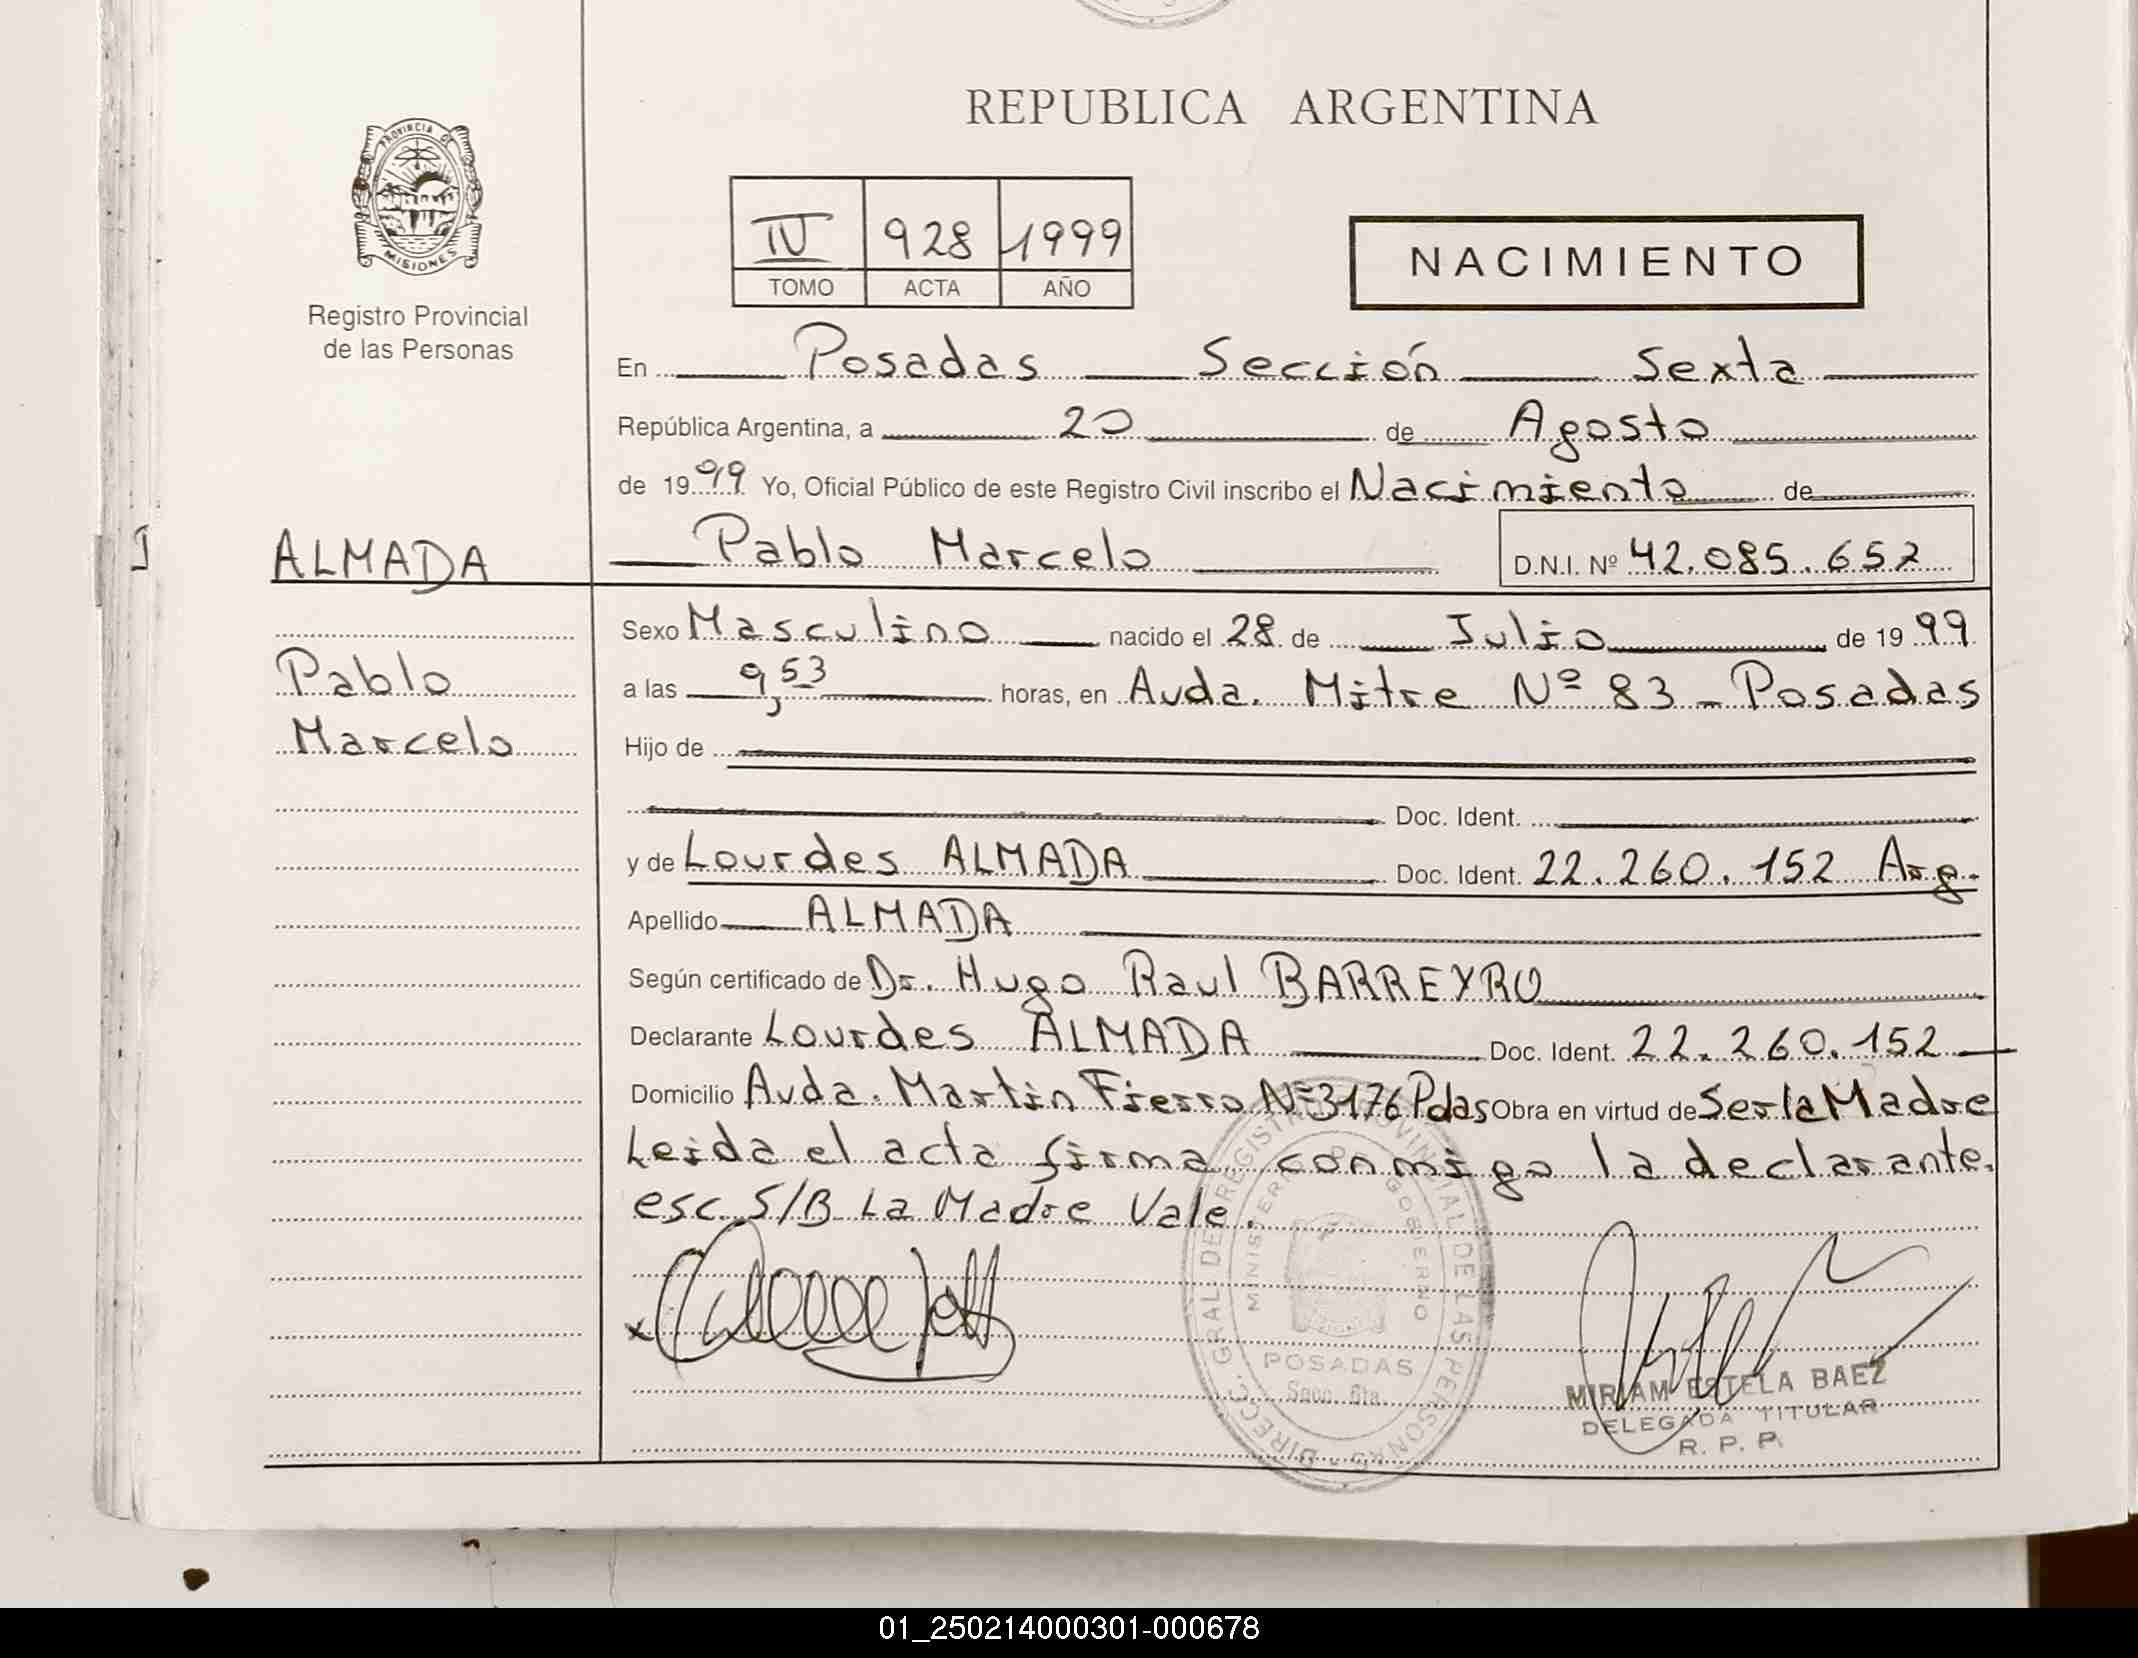 REPUBLICA ARGENTINA
PROVINCIA DE
MISIONES
Registro Provincial
de las Personas
IV 928 1999
TOMO ACTA AÑO
NACIMIENTO
En Posadas Sección Sexta
República Argentina, a 20 de Agosto
de 1999 Yo, Oficial Público de este Registro Civil inscribo el Nacimiento de
ALMADA
Pablo Marcelo D.N.I. Nº 42.085.652
Pablo
Marcelo
Sexo Masculino nacido el 28 de Julio de 1999
a las 9,53 horas, en Avda. Mitre Nº 83 - Posadas
Hijo de
Doc. Ident.
y de Lourdes ALMADA Doc. Ident. 22.260.152 Arg.
Apellido ALMADA
Según certificado de Dr. Hugo Raul BARREYRO
Declarante Lourdes ALMADA Doc. Ident. 22.260.152
Domicilio Avda. Martin Fierro Nº 3176 Pdas Obra en virtud de Ser la Madre
Leida el acta firma conmigo la declarante.
esc S/B La Madre Vale.
DIRECC. GRAL. DE REGISTRO PROVINCIAL DE LAS PERSONAS
MINISTERIO DE GOBIERNO
POSADAS
Secc. 6ta.
MIRIAM ESTELA BAEZ
DELEGADA TITULAR
R. P. P.
01_250214000301-000678